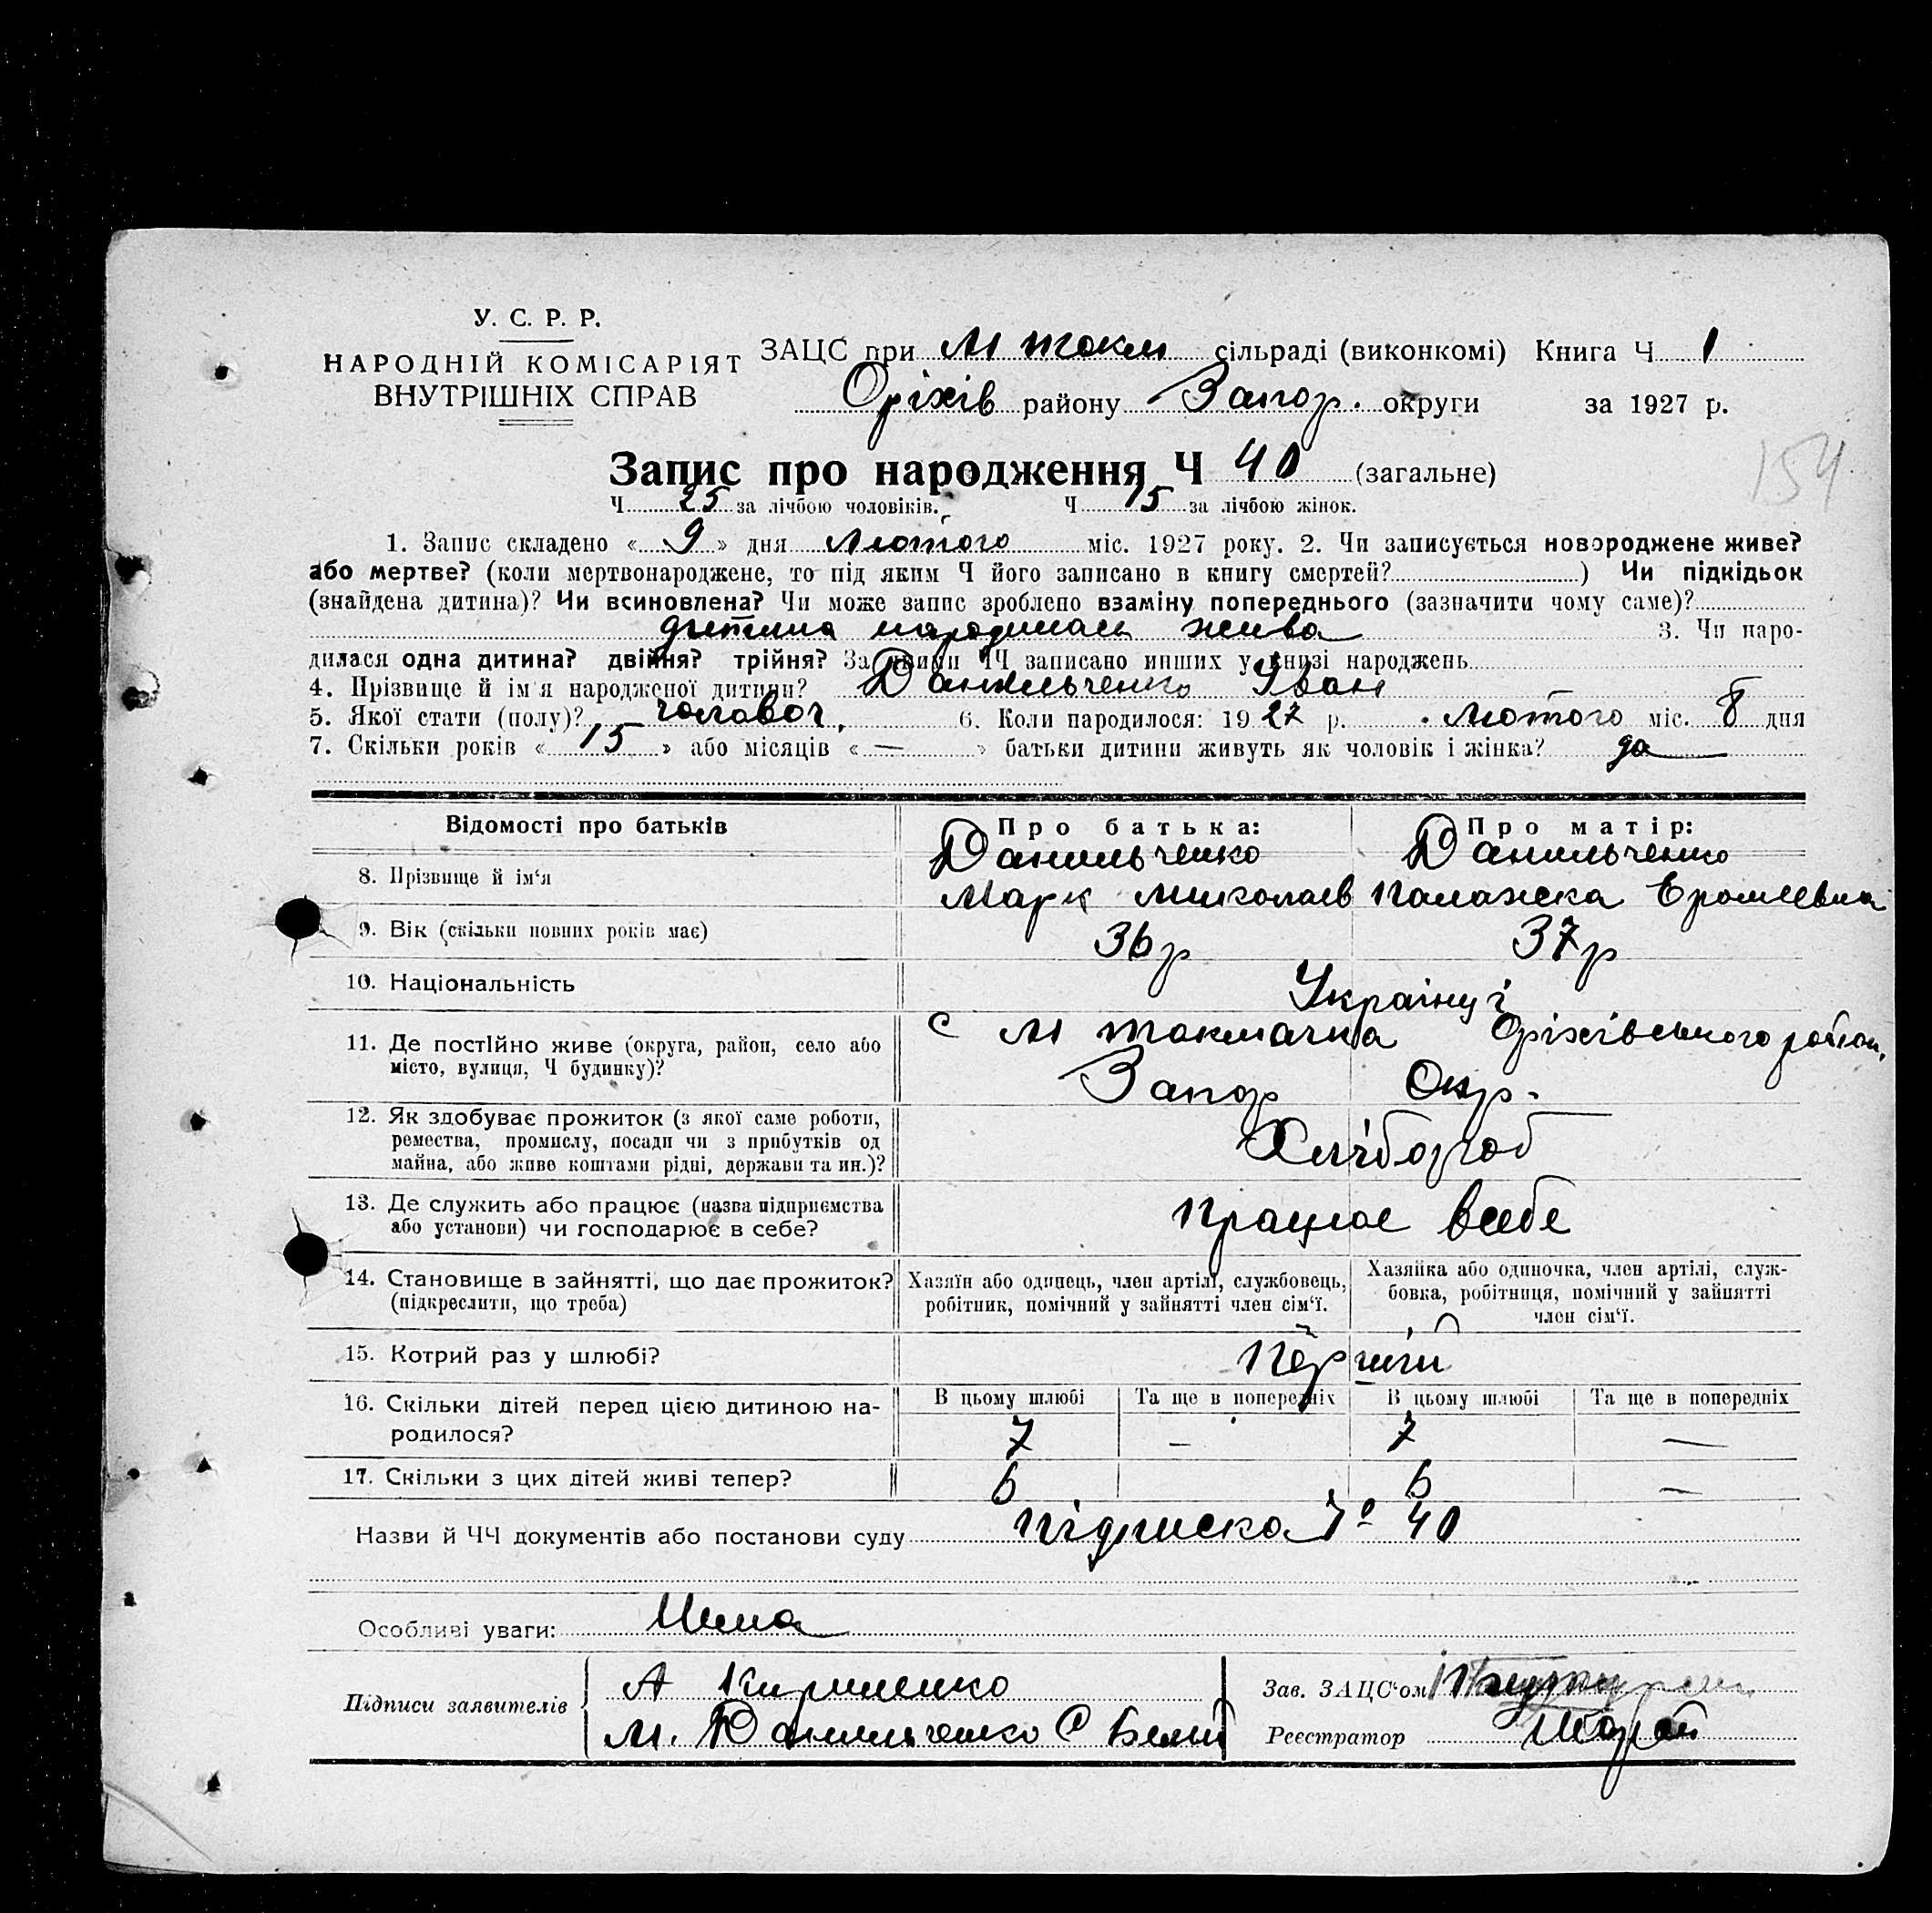 У. С. Р. Р.
НАРОДНІЙ КОМІСАРІЯТ
ВНУТРІШНІХ СПРАВ
ЗАЦС при М токм сільраді (виконкомі) Книга Ч 1
Оріхів району Запор. округи за 1927 р.
154
Запис про народження Ч 40 (загальне)
Ч 25 за лічбою чоловіків. Ч 15 за лічбою жінок.
1. Запис складено « 9 » дня Лютого міс. 1927 року. 2. Чи записується новороджене живе?
або мертве? (коли мертвонароджене, то під яким Ч його записано в книгу смертей?) Чи підкідьок
(знайдена дитина)? Чи всиновлена? Чи може запис зроблено взаміну попереднього (зазначити чому саме)?
дитина народилась жива 3. Чи наро-
дилася одна дитина? двійня? трійня? За якими ЧЧ записано инших у книзі народжень
4. Прізвище й ім'я народженої дитини? Данильченко Іван
5. Якої стати (полу)? чоловоч. 6. Коли народилося: 1927 р. Лютого міс. 8 дня
7. Скільки років « 15 » або місяців « — » батьки дитини живуть як чоловік і жінка? да
Відомості про батьків Про батька: Про матір:
8. Прізвище й ім'я Данильченко Данильченко
Марк Миколаєв Палажка
9. Вік (скільки повних років має) 36р 37р
10. Національність Українці
11. Де постійно живе (округа, район, село або місто, вулиця, Ч будинку)? с М токмачка Оріхівського район.
Запор Окр.
12. Як здобуває прожиток (з якої саме роботи,
ремества, промислу, посади чи з прибутків од
майна, або живе коштами рідні, держави та ин.)? Хлібороб
13. Де служить або працює (назва підприємства
або установи) чи господарює в себе? працює всебе
14. Становище в зайнятті, що дає прожиток?
(підкреслити, що треба)
Хазяїн або одинець, член артілі, службовець,
робітник, помічний у зайнятті член сім'ї.
Хазяйка або одиночка, член артілі, служ-
бовка, робітниця, помічний у зайнятті
член сім'ї.
15. Котрий раз у шлюбі? Перший
16. Скільки дітей перед цією дитиною на-
родилося?
В цьому шлюбі Та ще в попередніх В цьому шлюбі Та ще в попередніх
7 — 7 —
17. Скільки з цих дітей живі тепер? 6 6 —
Назви й ЧЧ документів або постанови суду підписка № 40
Особливі уваги: Нема
Підписи заявителів А Кириленко
М. Данильченко С Белий
Зав. ЗАЦС'ом
Реєстратор